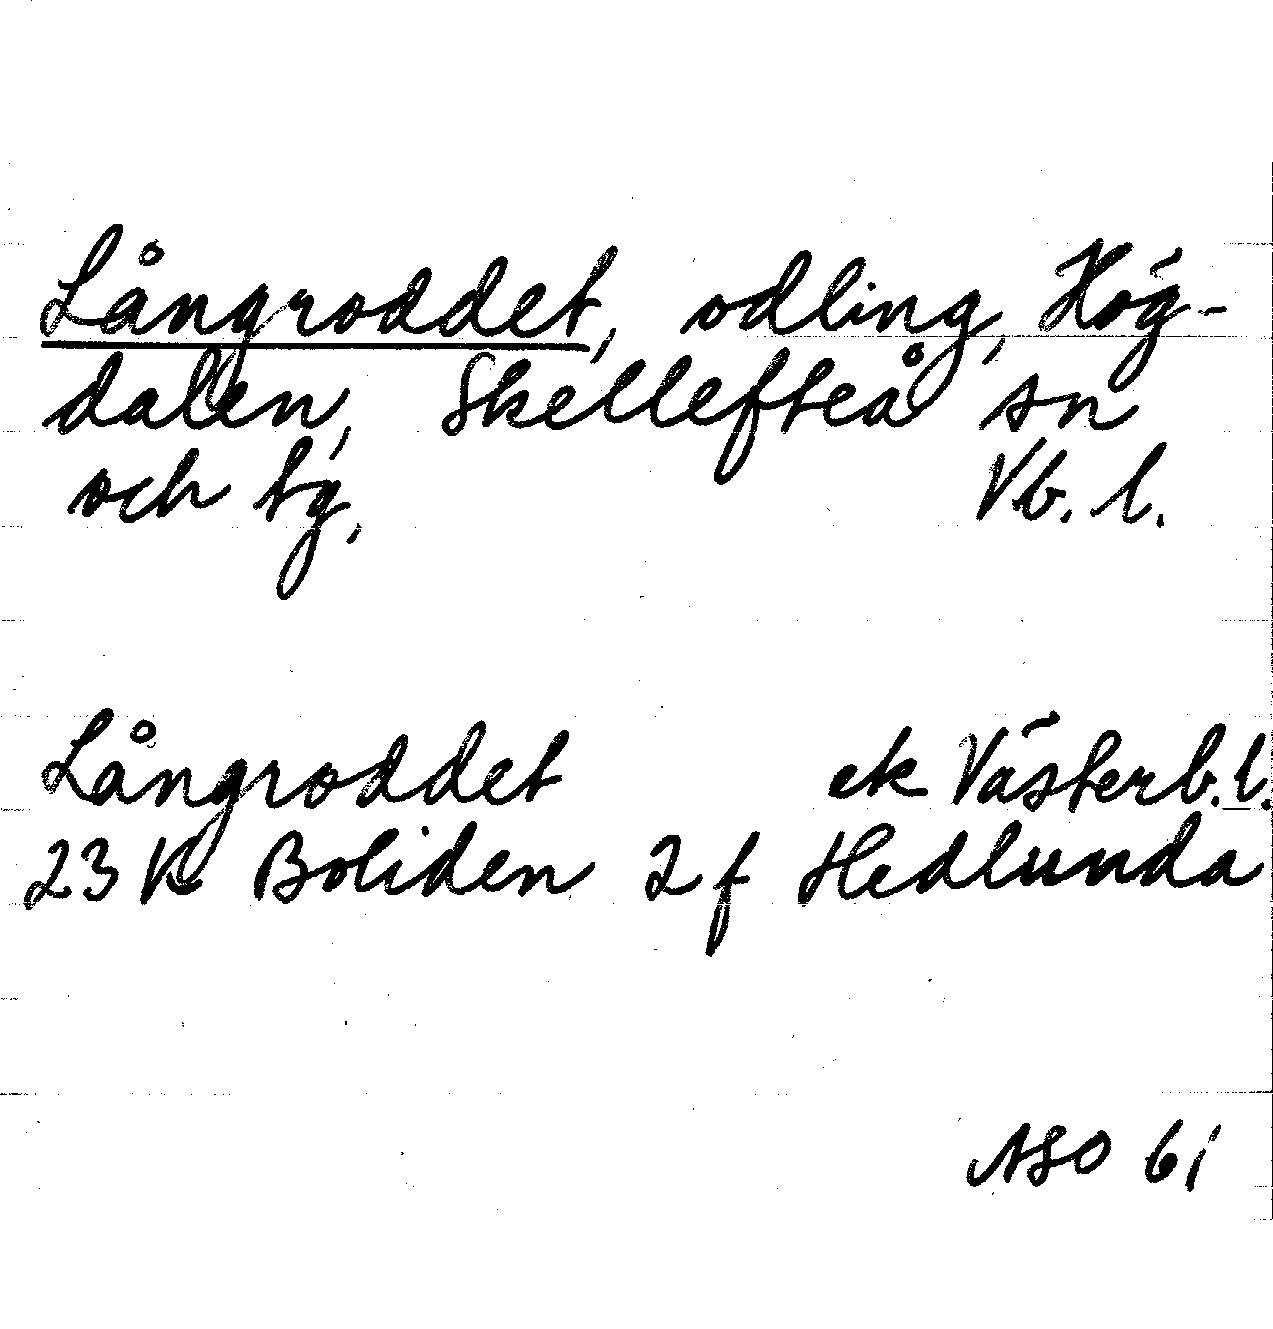 Långroddet, odling, Hög-
dalen, Skellefteå sn
och tg, Vb. l.
Långroddet ek Västerb. l.
23 K Boliden 2 f Hedlunda
ASO 61